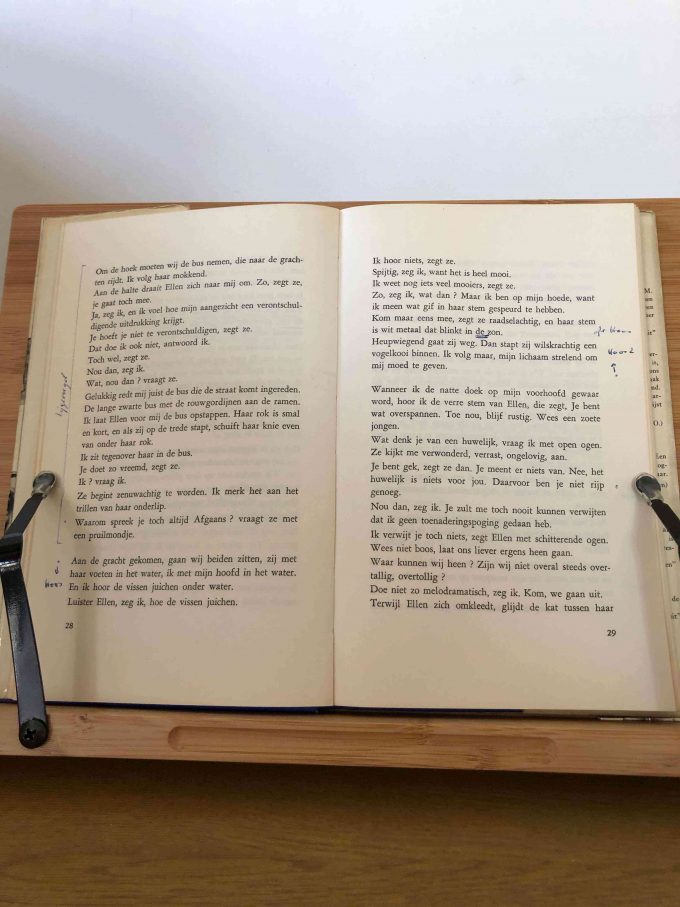 Om de hoek moeten wij de bus nemen, die naar de grach-
ten rijdt. Ik volg haar mokkend.
Aan de halte draait Ellen zich naar mij om. Zo, zegt ze,
je gaat toch mee.
Ja, zeg ik, en ik voel hoe mijn aangezicht een verontschul-
digende uitdrukking krijgt.
Je hoeft je niet te verontschuldigen, zegt ze.
Dat doe ik ook niet, antwoord ik.
Toch wel, zegt ze.
Nou dan, zeg ik.
Wat, nou dan ? vraagt ze.
Gelukkig redt mij juist de bus die de straat komt ingereden.
De lange zwarte bus met de rouwgordijnen aan de ramen.
Ik laat Ellen voor mij de bus opstappen. Haar rok is smal
en kort, en als zij op de trede stapt, schuift haar knie even
van onder haar rok.
Ik zit tegenover haar in de bus.
Je doet zo vreemd, zegt ze.
Ik ? vraag ik.
Ze begint zenuwachtig te worden. Ik merk het aan het
trillen van haar onderlip.
Waarom spreek je toch altijd Afgaans ? vraagt ze met
een pruilmondje.
Aan de gracht gekomen, gaan wij beiden zitten, zij met
haar voeten in het water, ik met mijn hoofd in het water.
En ik hoor de vissen juichen onder water.
Luister Ellen, zeg ik, hoe de vissen juichen.
28
Ik hoor niets, zegt ze.
Spijtig, zeg ik, want het is heel mooi.
Ik weet nog iets veel mooiers, zegt ze.
Zo, zeg ik, wat dan ? Maar ik ben op mijn hoede, want
ik meen wat gif in haar stem gespeurd te hebben.
Kom maar eens mee, zegt ze raadselachtig, en haar stem
is wit metaal dat blinkt in de zon.
Heupwiegend gaat zij weg. Dan stapt zij wilskrachtig een
vogelkooi binnen. Ik volg maar, mijn lichaam strelend om
mij moed te geven.
Wanneer ik de natte doek op mijn voorhoofd gewaar
word, hoor ik de verre stem van Ellen, die zegt, Je bent
wat overspannen. Toe nou, blijf rustig. Wees een zoete
jongen.
Wat denk je van een huwelijk, vraag ik met open ogen.
Ze kijkt me verwonderd, verrast, ongelovig, aan.
Je bent gek, zegt ze dan. Je meent er niets van. Nee, het
huwelijk is niets voor jou. Daarvoor ben je niet rijp
genoeg.
Nou dan, zeg ik. Je zult me toch nooit kunnen verwijten
dat ik geen toenaderingspoging gedaan heb.
Ik verwijt je toch niets, zegt Ellen met schitterende ogen.
Wees niet boos, laat ons liever ergens heen gaan.
Waar kunnen wij heen ? Zijn wij niet overal steeds over-
tallig, overtollig ?
Doe niet zo melodramatisch, zeg ik. Kom, we gaan uit.
Terwijl Ellen zich omkleedt, glijdt de kat tussen haar
29